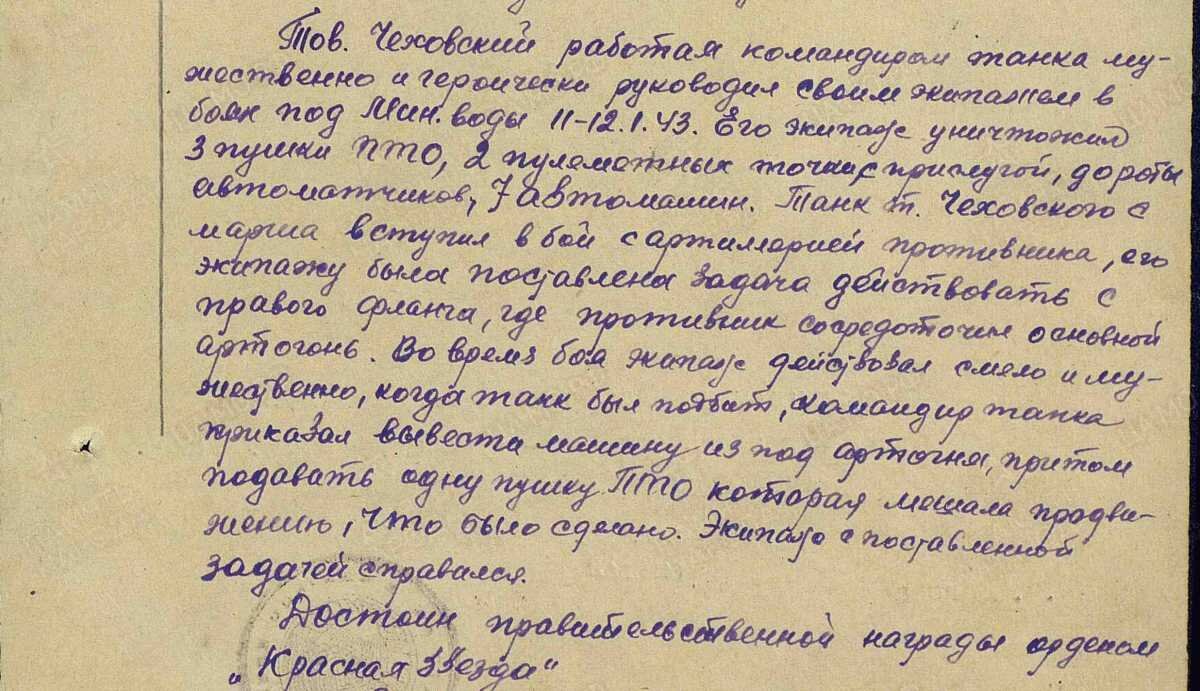 Тов. Чеховский работая командиром танка му-
жественно и героически руководил своим экипажем в
боях под Мин. воды 11-12.1.43. Его экипаж уничтожил
3 пушки ПТО, 2 пулеметных точки с прислугой, до роты
автоматчиков, 7 автомашин. Танк т. Чеховского с
марша вступил в бой с артиллерией противника, его
экипажу была поставлена задача действовать с
правого фланга, где противник сосредоточил основной
артогонь. Во время боя экипаж действовал смело и му-
жественно, когда танк был подбит, командир танка
приказал вывести машину из под артогня, притом
подавать одну пушку ПТО которая мешала продви-
жению, что было сделано. Экипаж с поставленной
задачей справился.
Достоин правительственной награды орденом
„Красная Звезда"